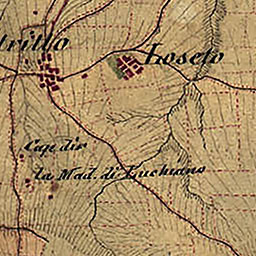 trillo
Loseto
Cap. dir
la Mad. di Luchiano